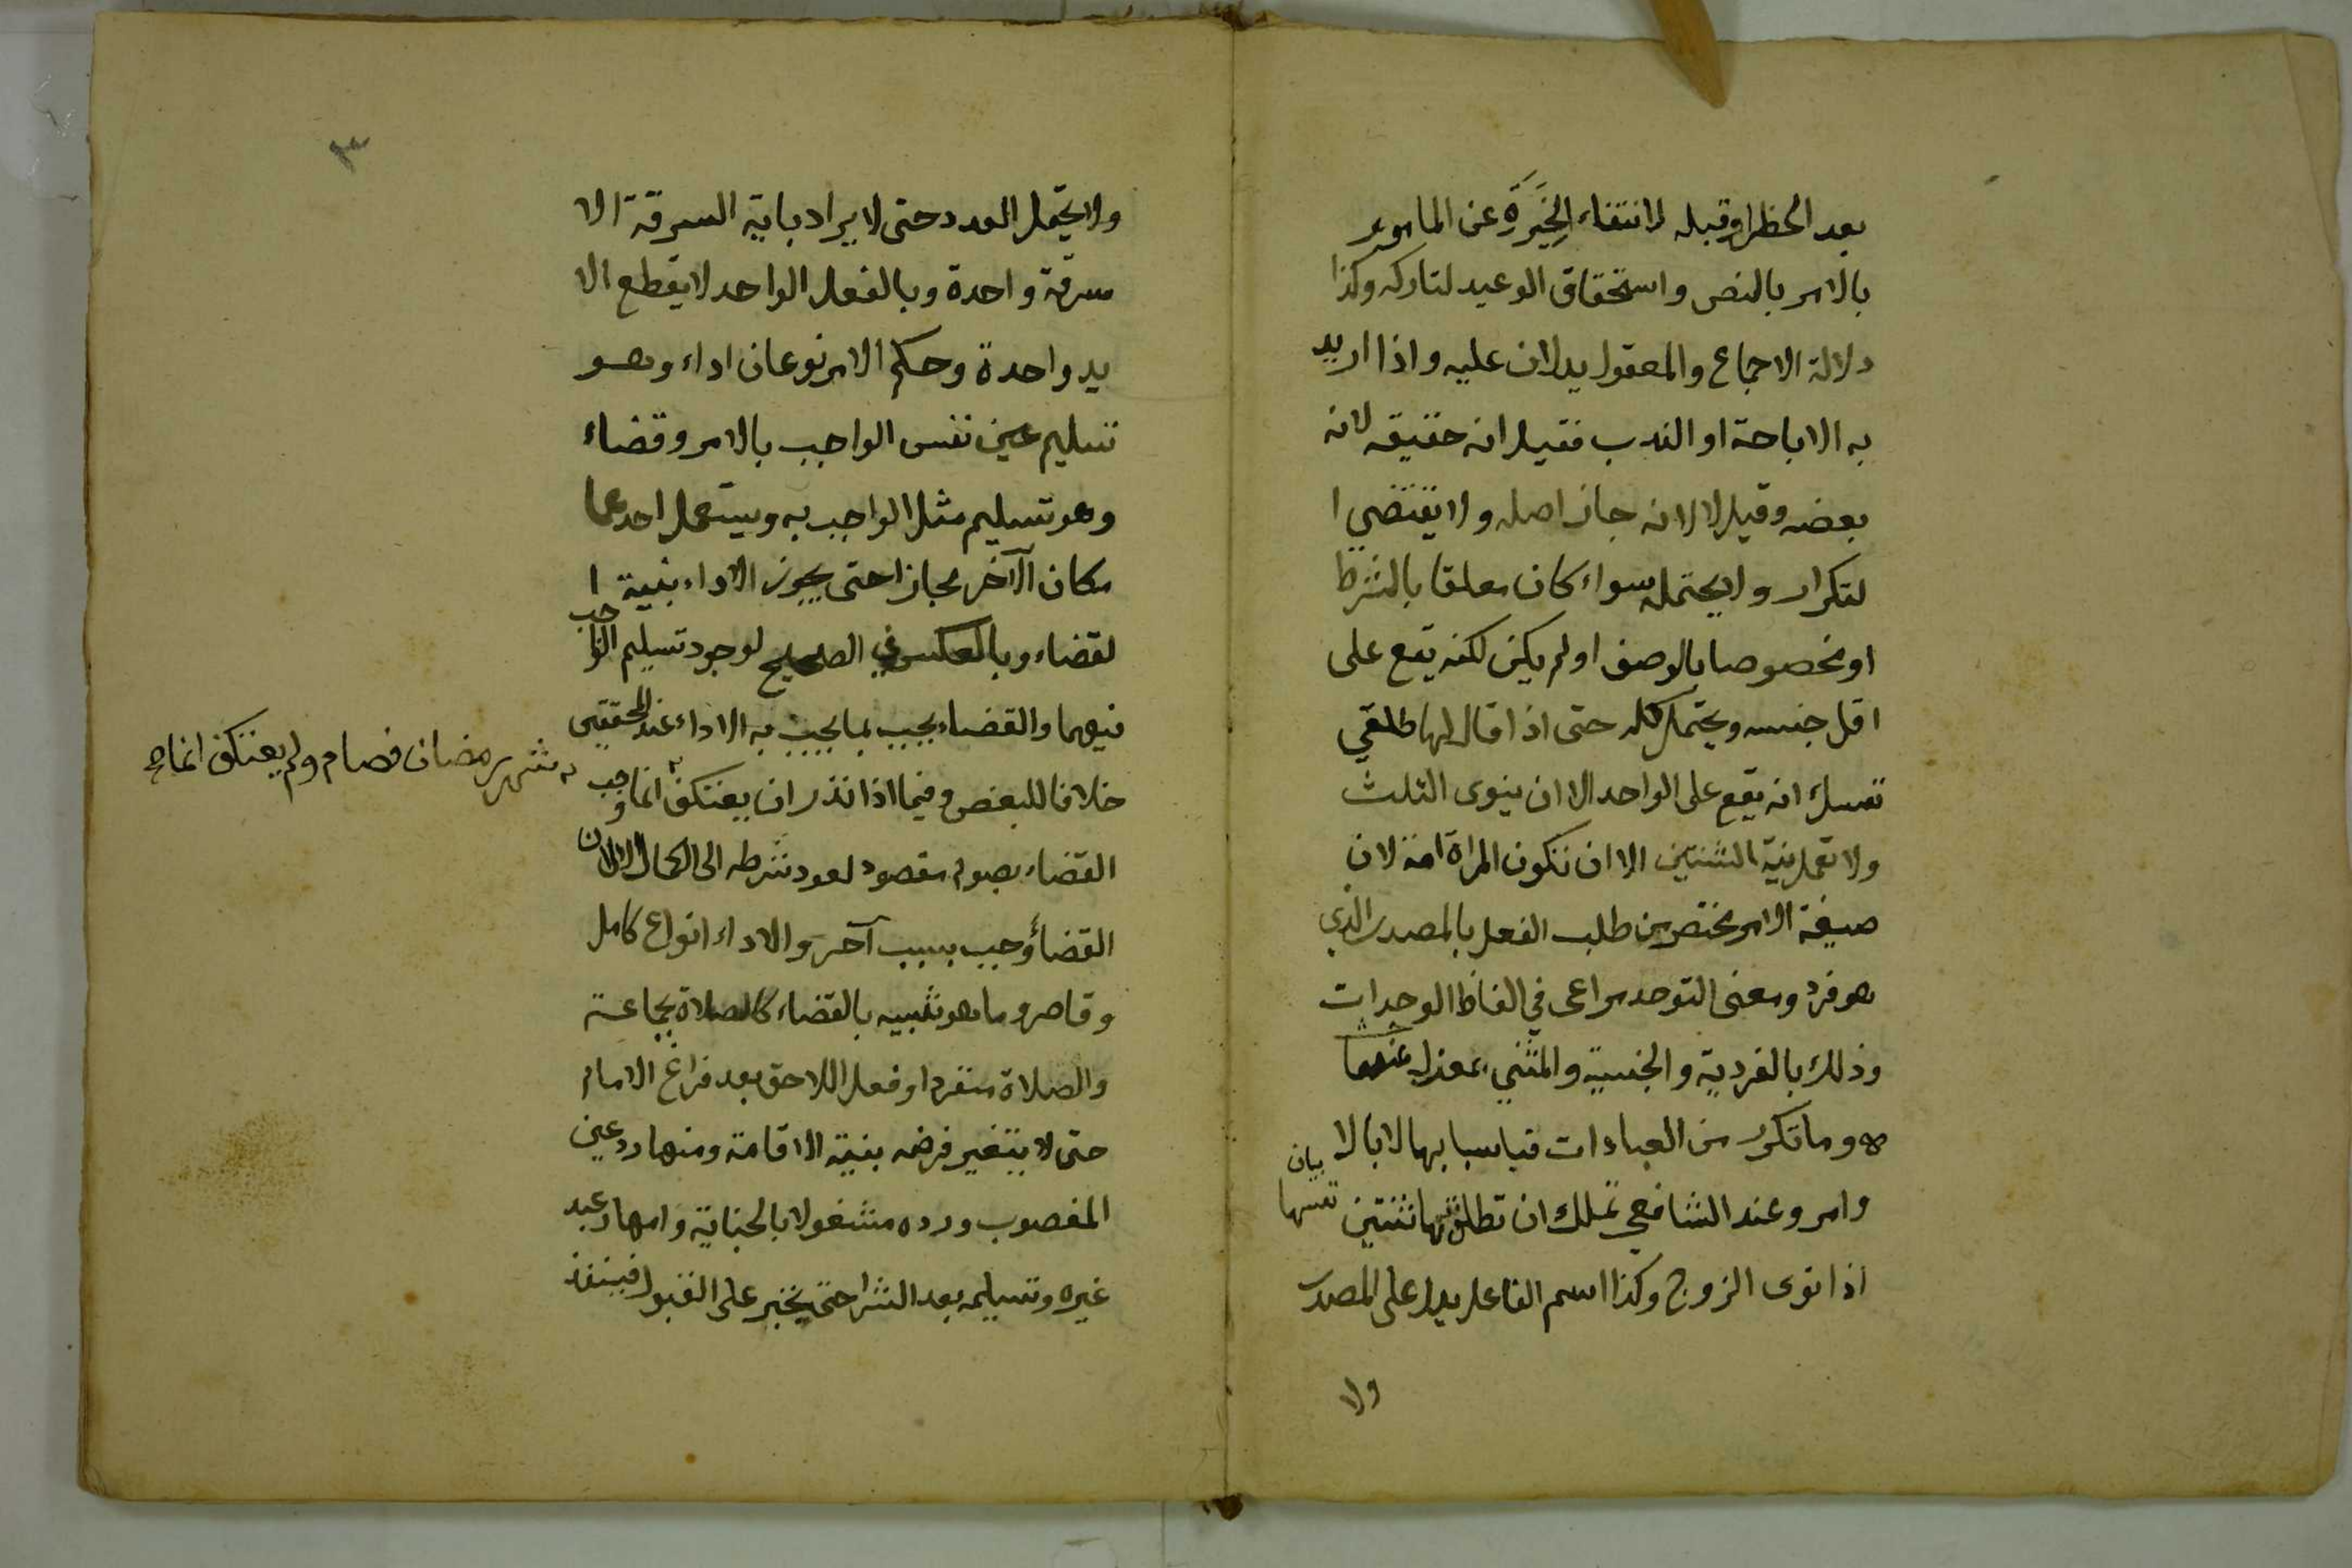 بعد الحظر او قبله لانتفاء الخِيَرَةِ عن المامور
بالامر بالنص واستحقاق الوعيد لتاركه وكذا
دلالة الاجماع والمعقول يدلان عليه واذا اريد
به الاباحة او الندب فقيل انه حقيقه لانه
بعضه وقيل لا لانه جاز اصله ولا يقتضي ا
لتكرار ولا يحتمله سواء كان معلقا بالشرط
او مخصوصا بالوصف او لم يكن لكنه يقع على
اقل جنسه ويحتمل كله حتى اذا قال لها طلقي
نفسك انه يقع على الواحد الا ان ينوى الثلث
ولا تعمل نية الثنتين الا ان تكون المراة امة لان
صيغة الامر مختصر من طلب الفعل بالمصدر الذي
هو فرد ومعنى التوحد مراعى في الفاظ الوحدات
وذلك بالفردية والجنسية والمثنى بمعزل عنهما
وما تكرر من العبادات فباسبابها لا بالا
وامر وعند الشافعي تملك ان تطلق نفسها ثنتين
اذا نوى الزوج وكذا اسم الفاعل يدل على المصدر
ولا
٣
ولا يحتمل العدد حتى لا يراد باية السرقة الا
سرقة واحدة وبالفعل الواحد لا يقطع الا
يد واحدة وحكم الامر نوعان اداء وهو
تسليم عين نفس الواجب بالامر وقضاء
وهو تسليم مثل الواجب به ويستعمل احدهما
مكان الآخر مجازا حتى يجوز الاداء بنية ا
لقضاء وبالعكس في الصحيح لوجود تسليم الواجب
فيهما والقضاء يجب بما يجب به الاداء عند المحققين
خلافا للبعض وفيما اذا نذر ان يعتكف انما وجب
شهر رمضان فصام ولم يعتكف انما
القضاء بصوم مقصود لعود شرطه الى الكمال لا لان
القضاء وجب بسبب آخر والاداء انواع كامل
وقاصر وما هو شبيه بالقضاء كالصلاة بجماعة
والصلاة منفردا وفعل اللاحق بعد فراغ الامام
حتى لا يتغير فرضه بنية الاقامة ومنها رد عين
المغصوب ورده مشغولا بالجناية وامهار عبد
غيره وتسليمه بعد الشرا حتى يجبر على القبول فينفذ